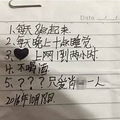 1、每天8点起来
2、每天晚上十点睡觉
3、上网1到两小时
4、不喝酒
5、???只爱肖一人
2016年10月18日